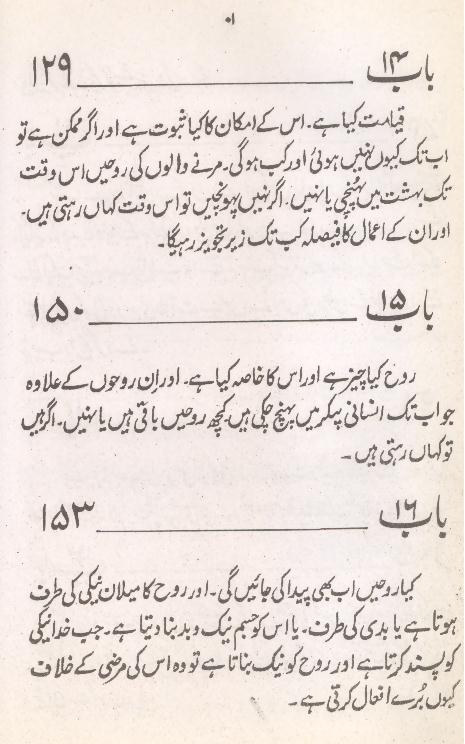 ۱۰
باب ۱۴ ۱۲۹
قیامت کیا ہے۔ اس کے امکان کا کیا ثبوت ہے اور اگر ممکن ہے تو
اب تک کیوں نہیں ہوئی اور کب ہوگی۔ مرنے والوں کی روحیں اس وقت
تک بہشت میں پہنچی یا نہیں۔ اگر نہیں پہونچیں تو اس وقت کہاں رہتی ہیں۔
اور ان کے اعمال کا فیصلہ کب تک زیر تجویز رہیگا۔
باب ۱۵ ۱۵۰
روح کیا چیز ہے اور اس کا خاصہ کیا ہے۔ اور ان روحوں کے علاوہ
جو اب تک انسانی پیکر میں پہنچ چکی ہیں کچھ روحیں باقی ہیں یا نہیں۔ اگر ہیں
تو کہاں رہتی ہیں۔
باب ۱۶ ۱۵۳
کیا روحیں اب بھی پیدا کی جائیں گی۔ اور روح کا میلان نیکی کی طرف
ہوتا ہے یا بدی کی طرف۔ یا اس کو جسم نیک و بد بنا دیتا ہے۔ جب خدا نیکی
کو پسند کرتا ہے اور روح کو نیک بناتا ہے تو وہ اس کی مرضی کے خلاف
کیوں بُرے افعال کرتی ہے۔